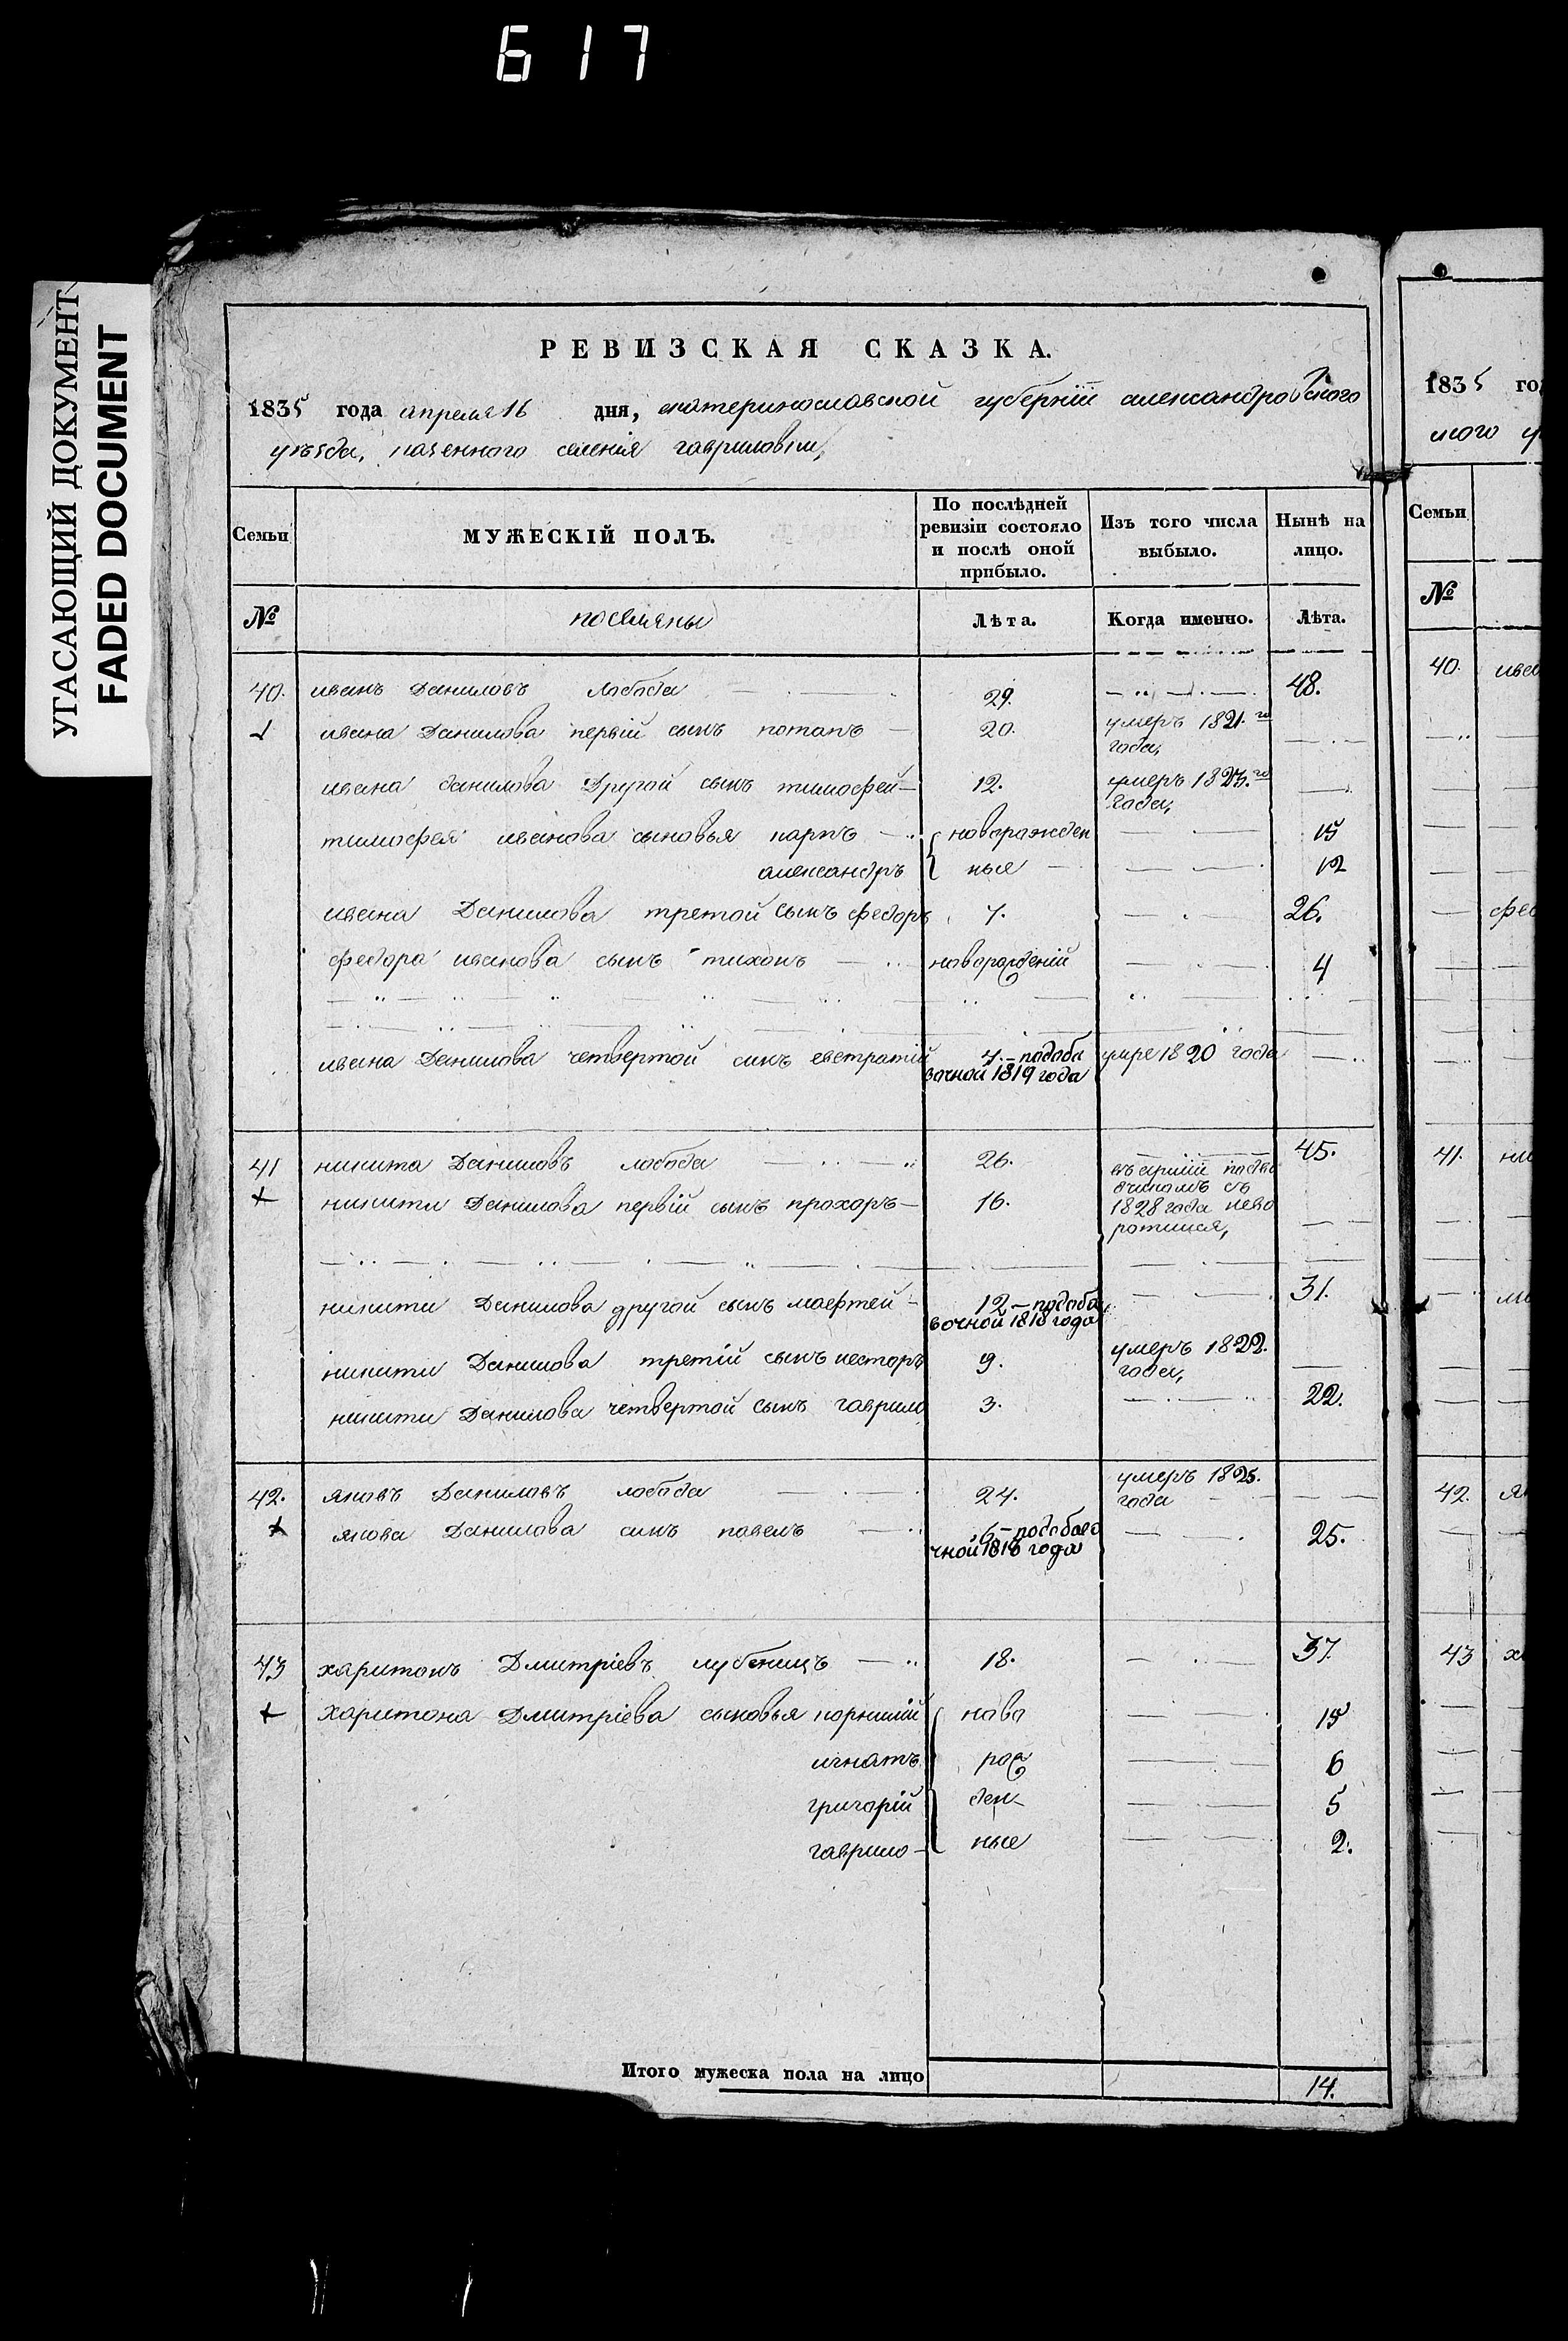 617
УГАСАЮЩИЙ ДОКУМЕНТ
FADED DOCUMENT
РЕВИЗСКАЯ СКАЗКА.
1835 года апреля 16 дня, екатеринославской губерніи александровского
уѣзда, казенного селенія гавриловки,
Семьи
МУЖЕСКІЙ ПОЛЪ.
По послѣдней ревизіи состояло и послѣ оной прибыло.
Изъ того числа выбыло.
Нынѣ на лицо.
№ поселяны Лѣта. Когда именно. Лѣта.
40. иванъ Даниловъ лобода 29. 48.
ивана Данилова первій сынъ потапъ 20. умеръ 1821.го года,
ивана данилова Другой сынъ тимофей 12. умеръ 1823.го года,
тимофея иванова сыновья карпъ новорожден 15
александръ ные 12
ивана Данилова третой сынъ федоръ 7. 26.
федора иванова сынъ тихонъ новорожденій 4
ивана Данилова четвертой синъ евстратій 4. – подоба вочной 1819 года умре 1820 года
41 никита Даниловъ лобода 26. 45.
никити Данилова первій сынъ прохоръ 16. въ арміи 1828 года нево ротился,
никити Данилова другой сынъ маефтей 12 – подоба вочной 1818 года 31.
никити Данилова третій сынъ несторъ 9. умеръ 1822. года,
никити Данилова четвертой сынъ гаврило 3. 22.
42. яковъ Даниловъ лобода 24. умеръ 1825. года
якова Данилова синъ павелъ 6 – подобаво чной 1818 года 25.
43 харитонъ Дмитріевъ лубенецъ 18. 37.
Харитона Дмитріева сыновья корнилій ново 15
игнатъ рож 6
григорій ден 5
гаврило ные 2.
Итого мужеска пола на лицо 14.
1835 го
Семьи
№
40. ива
фед
41. ни
42. як
43 х